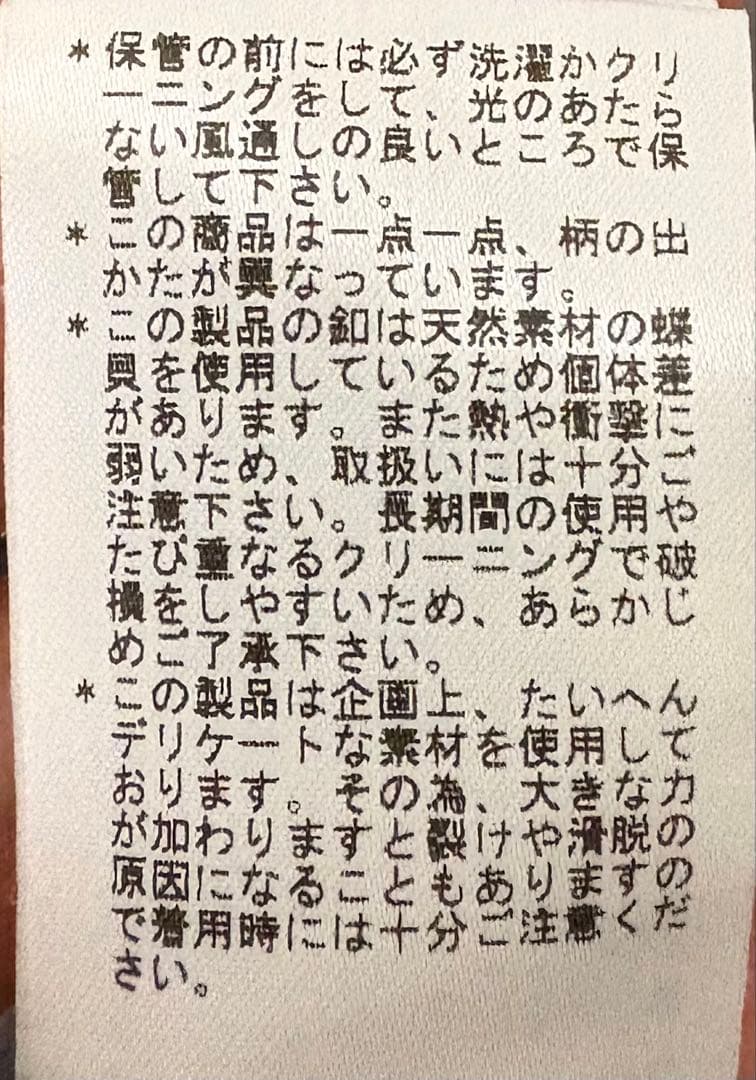 ＊ 保管の前には必ず洗濯かクリ
ーニングをして、光のあたら
ない風通しの良いところで保
管して下さい。
＊ この商品は一点一点、柄の出
かたが異なっています。
＊ この製品の釦は天然素材の蝶
貝を使用しているため個体差
があります。また熱や衝撃に
弱いため、取扱いには十分ご
注意下さい。長期間の使用や
たび重なるクリーニングで破
損をしやすいため、あらかじ
めご了承下さい。
＊ この製品は企画上、たいへん
デリケートな素材を使用して
おります。その為、大きな力
が加わりますと裂けや滑脱の
原因になることもありますの
で着用時には十分ご注意くだ
さい。